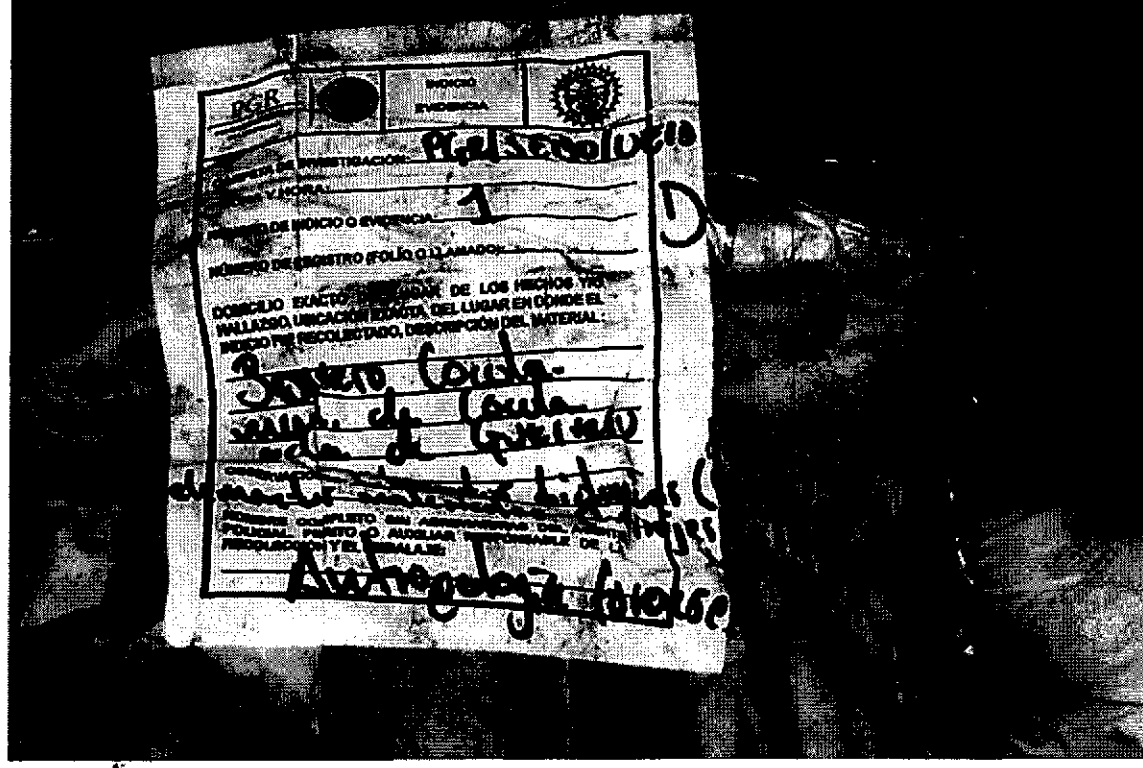 PGR
INDICIO
EVIDENCIA
CARPETA DE INVESTIGACIÓN: PGR/SEIDO/UEID
Y HORA:
NÚMERO DE INDICIO O EVIDENCIA 1
D
NÚMERO DE REGISTRO (FOLIO O LLAMADO):
DOMICILIO EXACTO DE LOS HECHOS Y/O
HALLAZGO, UBICACIÓN EXACTA DEL LUGAR EN DONDE EL
INDICIO FUE RECOLECTADO, DESCRIPCIÓN DEL MATERIAL:
Basurero Cocula.
de Cocula.
de Guerrero
elementos
POLICIAL, PERITO O AUXILIAR RESPONSABLE DE LA
RECOLECCIÓN Y EL EMBALAJE:
Antropología forense